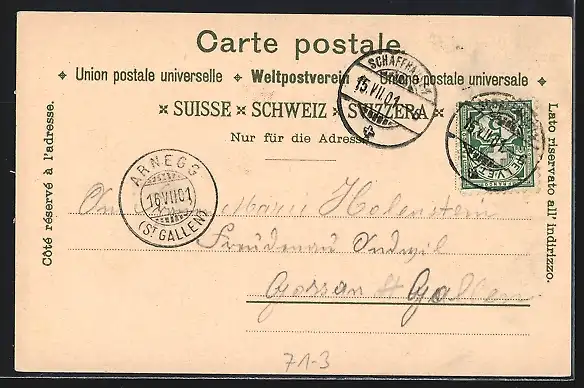 Carte postale.
Union postale universelle Weltpostverein Unione postale universale
SUISSE SCHWEIZ SVIZZERA
Nur für die Adresse
Côté réservé à l'adresse.
Lato riservato all' indirizzo.
SCHAFFHAUSEN
15.VII.01
15.VII.01
HELVETIA
ARNEGG
16 VII 01
(ST GALLEN)
Marie Holenstein
Freudenau
Gossau St Gallen
71-3